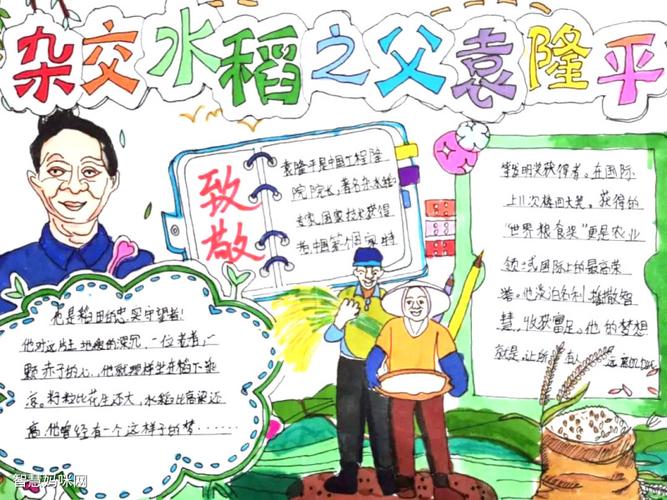 杂交水稻之父袁隆平
致敬
袁隆平是中国工程院
院院长,著名杂交水稻
专家,国家技术获得
者中国第一个国家特
等发明奖获得者。在国际
上11次摘回大奖。获得的
"世界粮食奖"更是农业
领域国际上的最高荣
誉。他淡泊名利,播撒智
慧,收获富足。他的梦想
就是,让所有人远离饥饿
他是稻田的忠实守望者!
他对这片土地爱的深沉,一位老者,一
颗赤子的心,他就想坐在稻下乘
凉。籽粒比花生还大,水稻比高粱还
高,他曾经有一个这样子的梦······
智慧妈咪网